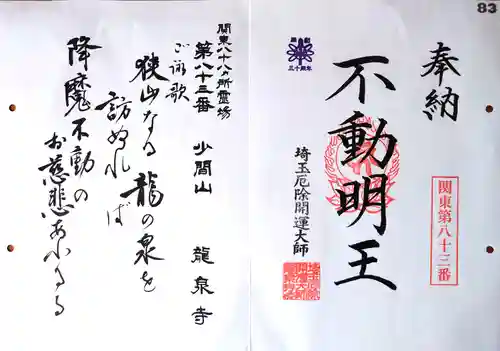 83
奉納
関東第八十三番
不動明王
埼玉厄除開運大師
開創
三十周年
関東八十八ヵ所霊場
第八十三番 少間山 龍泉寺
ご詠歌
狭山なる龍の泉を
訪ぬれば
降魔不動の
お慈悲あふるる